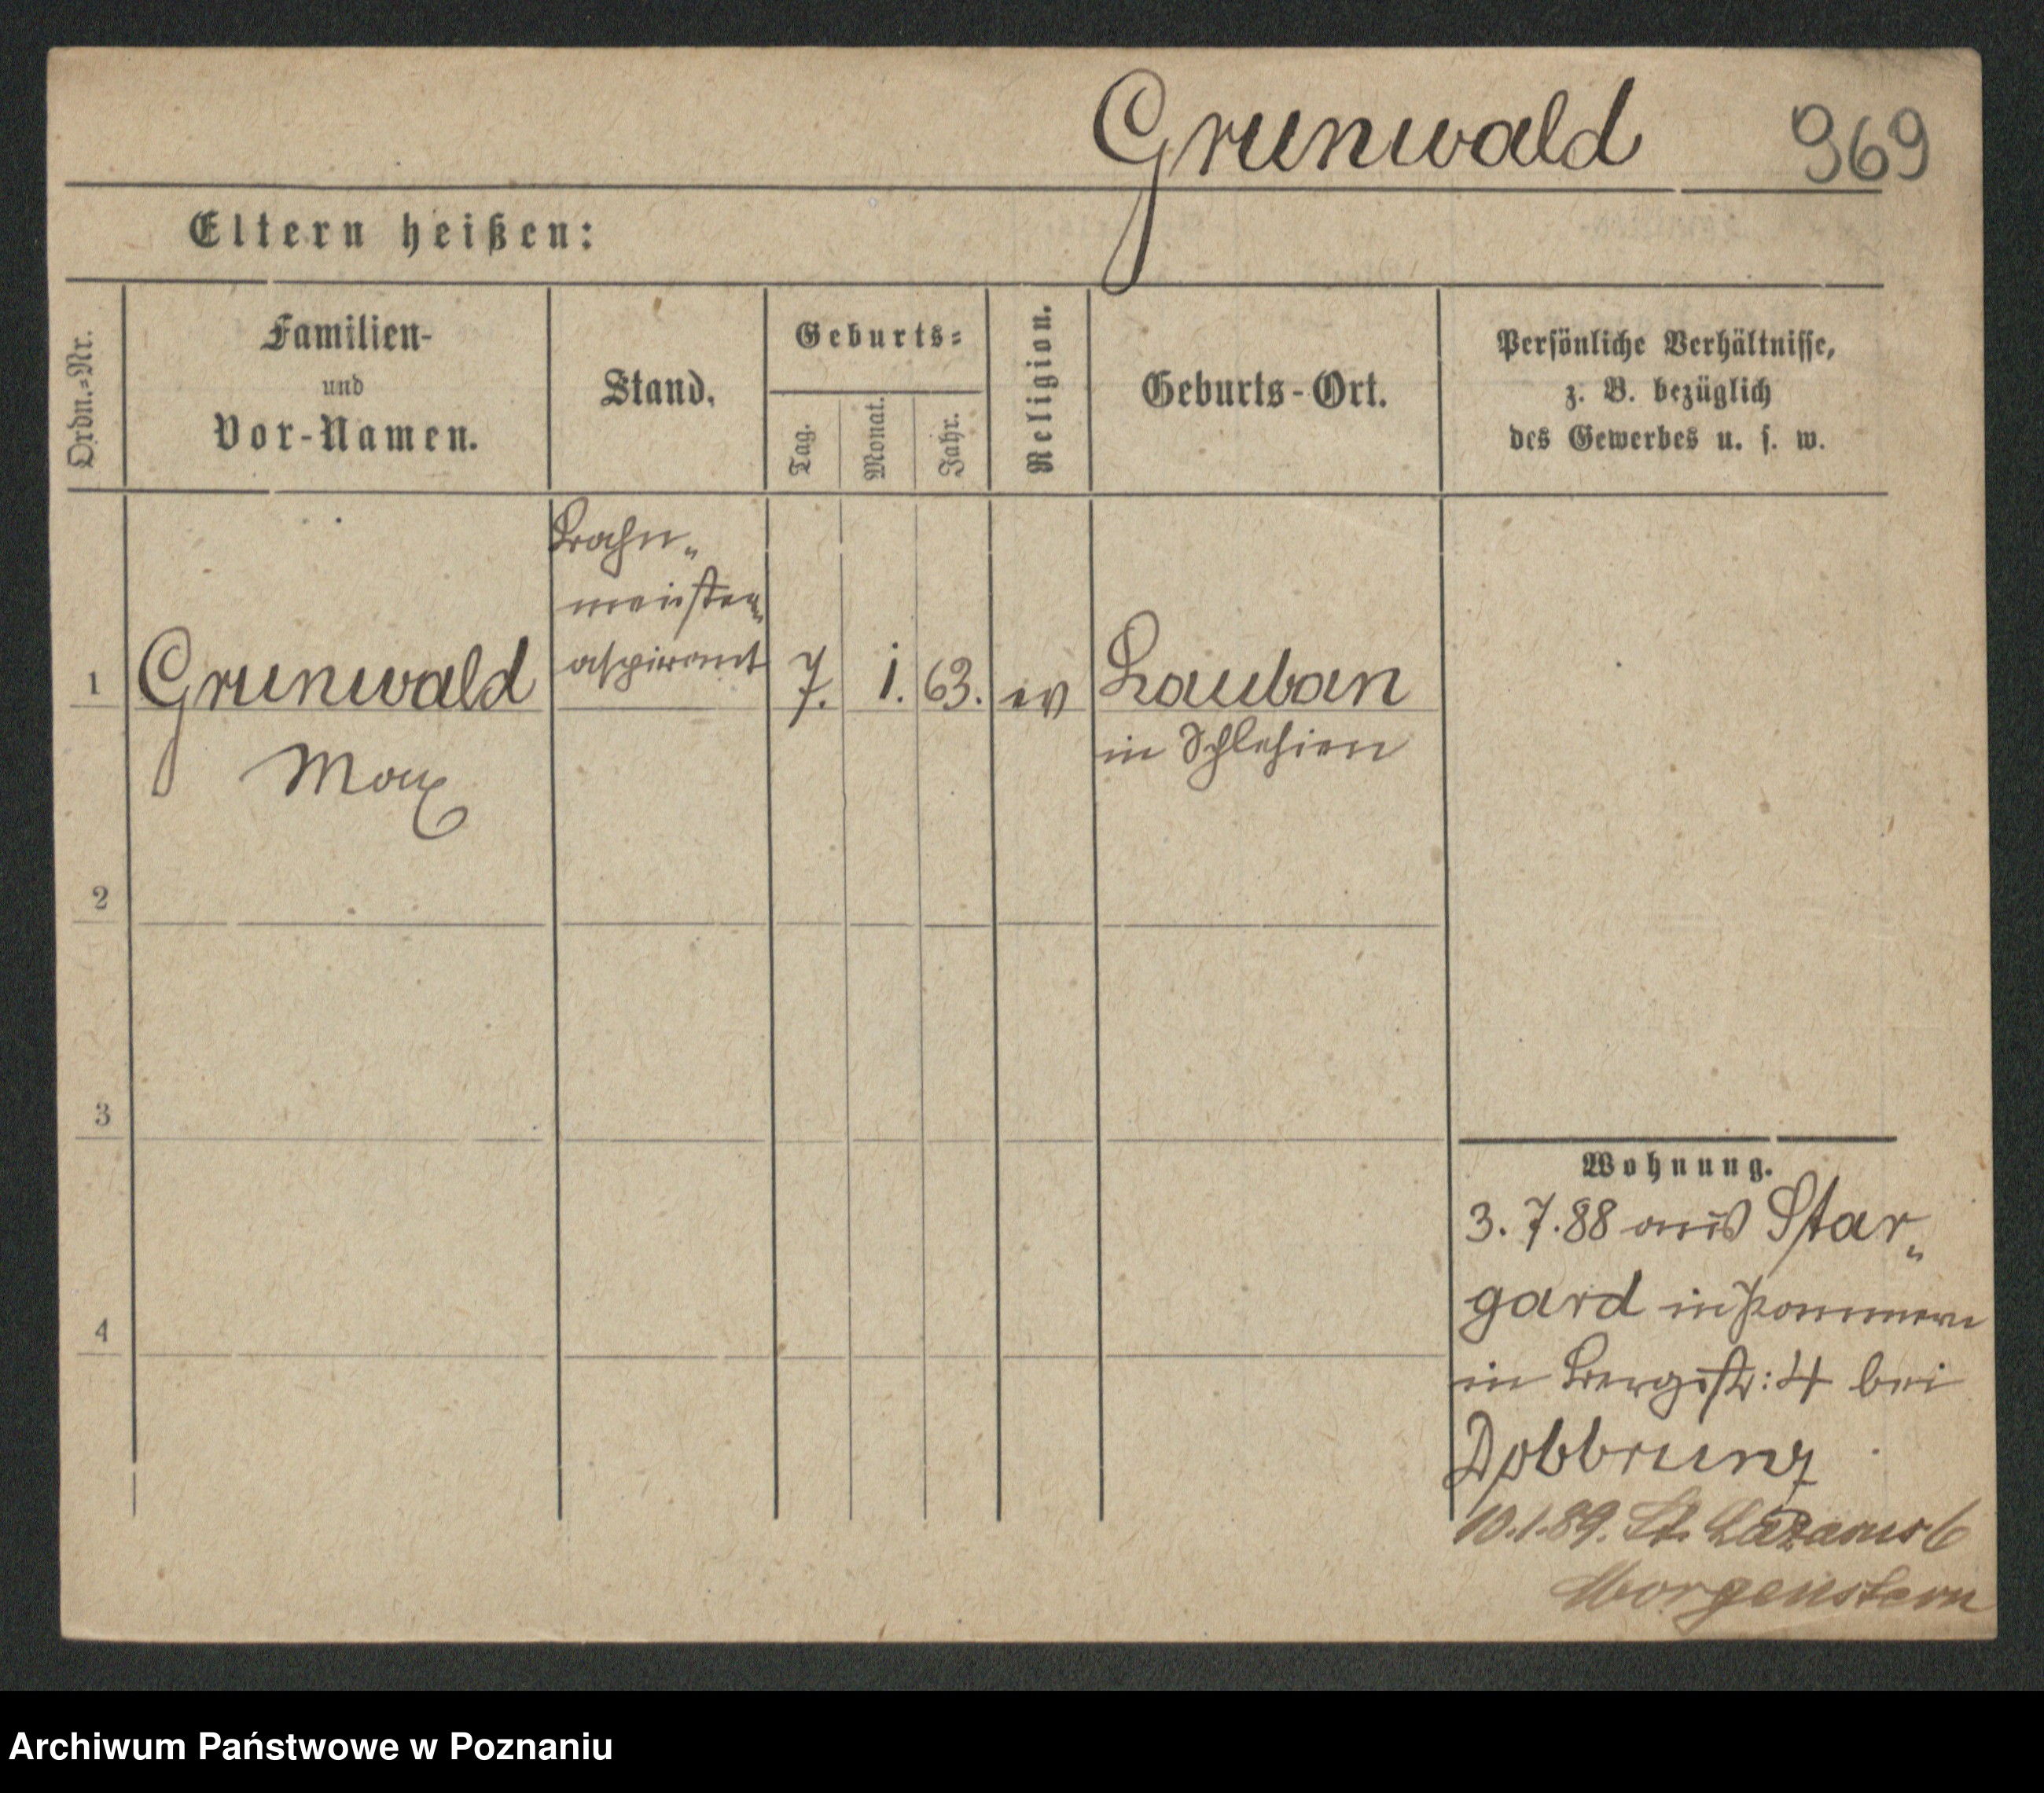 Grunwald 969
Eltern heißen:
Ordn.=Nr.
Familien-
und
Vor-Namen.
Stand.
Geburts=
Tag.
Monat.
Jahr.
Religion.
Geburts-Ort.
Persönliche Verhältnisse,
z. B. bezüglich
des Gewerbes u. s. w.
Bahn„
meister„
aspirant
1 Grunwald 7. 1. 63. ev Lauban
Max in Schlesien
2
3
4
Wohnung.
3. 7. 88 aus Star„
gard in Pommern
in Bergstr: 4 bei
Dobbrunz
10.1.89. St. Lazarus 6
Morgenstern
Archiwum Państwowe w Poznaniu